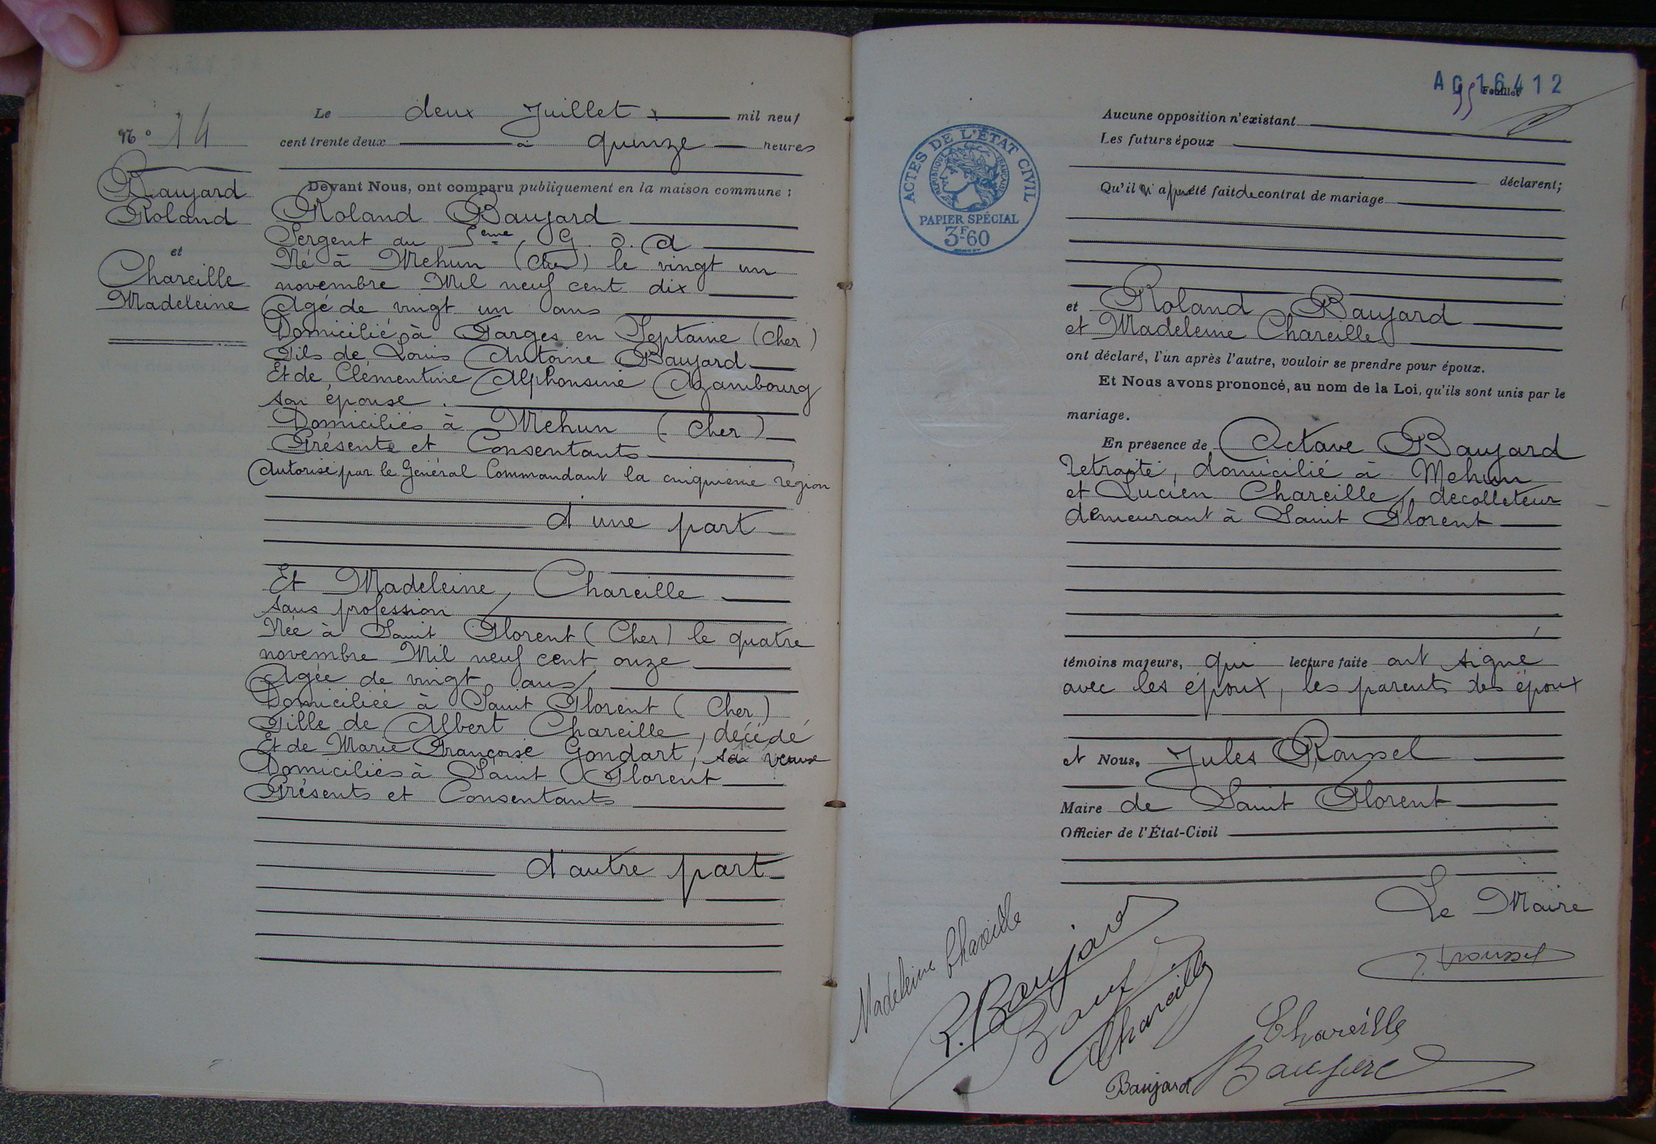 Le deux Juillet mil neuf
N° 14
cent trente deux à quinze heures
Devant Nous, ont comparu publiquement en la maison commune :
Baujard
Roland
et
Chareille
Madeleine
Roland Baujard
Sergent au 5eme G. o. a
Né à Mehun (Cher) le vingt un
novembre Mil neuf cent dix
Agé de vingt un ans
Domicilié à Farges en Septaine (Cher)
Fils de Louis Antoine Baujard
Et de Clémentine Alphonsine Azambourg
son épouse.
Domiciliés à Mehun (Cher)
Présents et Consentants
Autorisé par le Général Commandant la cinquième région
d'une part
Et Madeleine Chareille
sans profession
Née à Saint Florent (Cher) le quatre
novembre Mil neuf cent onze
Agée de vingt ans
Domiciliée à Saint Florent (Cher)
Fille de Albert Chareille, décédé
Et de Marie Françoise Gondart, sa veuve
Domiciliés à Saint Florent
Présents et Consentants
d'autre part
AC 16412
Feuillet
ACTES DE L'ÉTAT CIVIL
PAPIER SPÉCIAL
3F60
Aucune opposition n'existant
Les futurs époux
déclarent;
Qu'il n'a pas été fait de contrat de mariage
et Roland Baujard
et Madeleine Chareille
ont déclaré, l'un après l'autre, vouloir se prendre pour époux.
Et Nous avons prononcé, au nom de la Loi, qu'ils sont unis par le
mariage.
En présence de Octave Baujard
retraité, domicilié à Mehun
et Lucien Chareille, decolleteur
demeurant à Saint Florent
témoins majeurs, qui lecture faite ont signé
avec les époux, les parents des époux
et Nous, Jules Roussel
Maire de Saint Florent
Officier de l'État-Civil
Le Maire
J. Roussel
Madeleine Chareille
R. Baujard
Chareille
Chareille
Baujard
Baujard